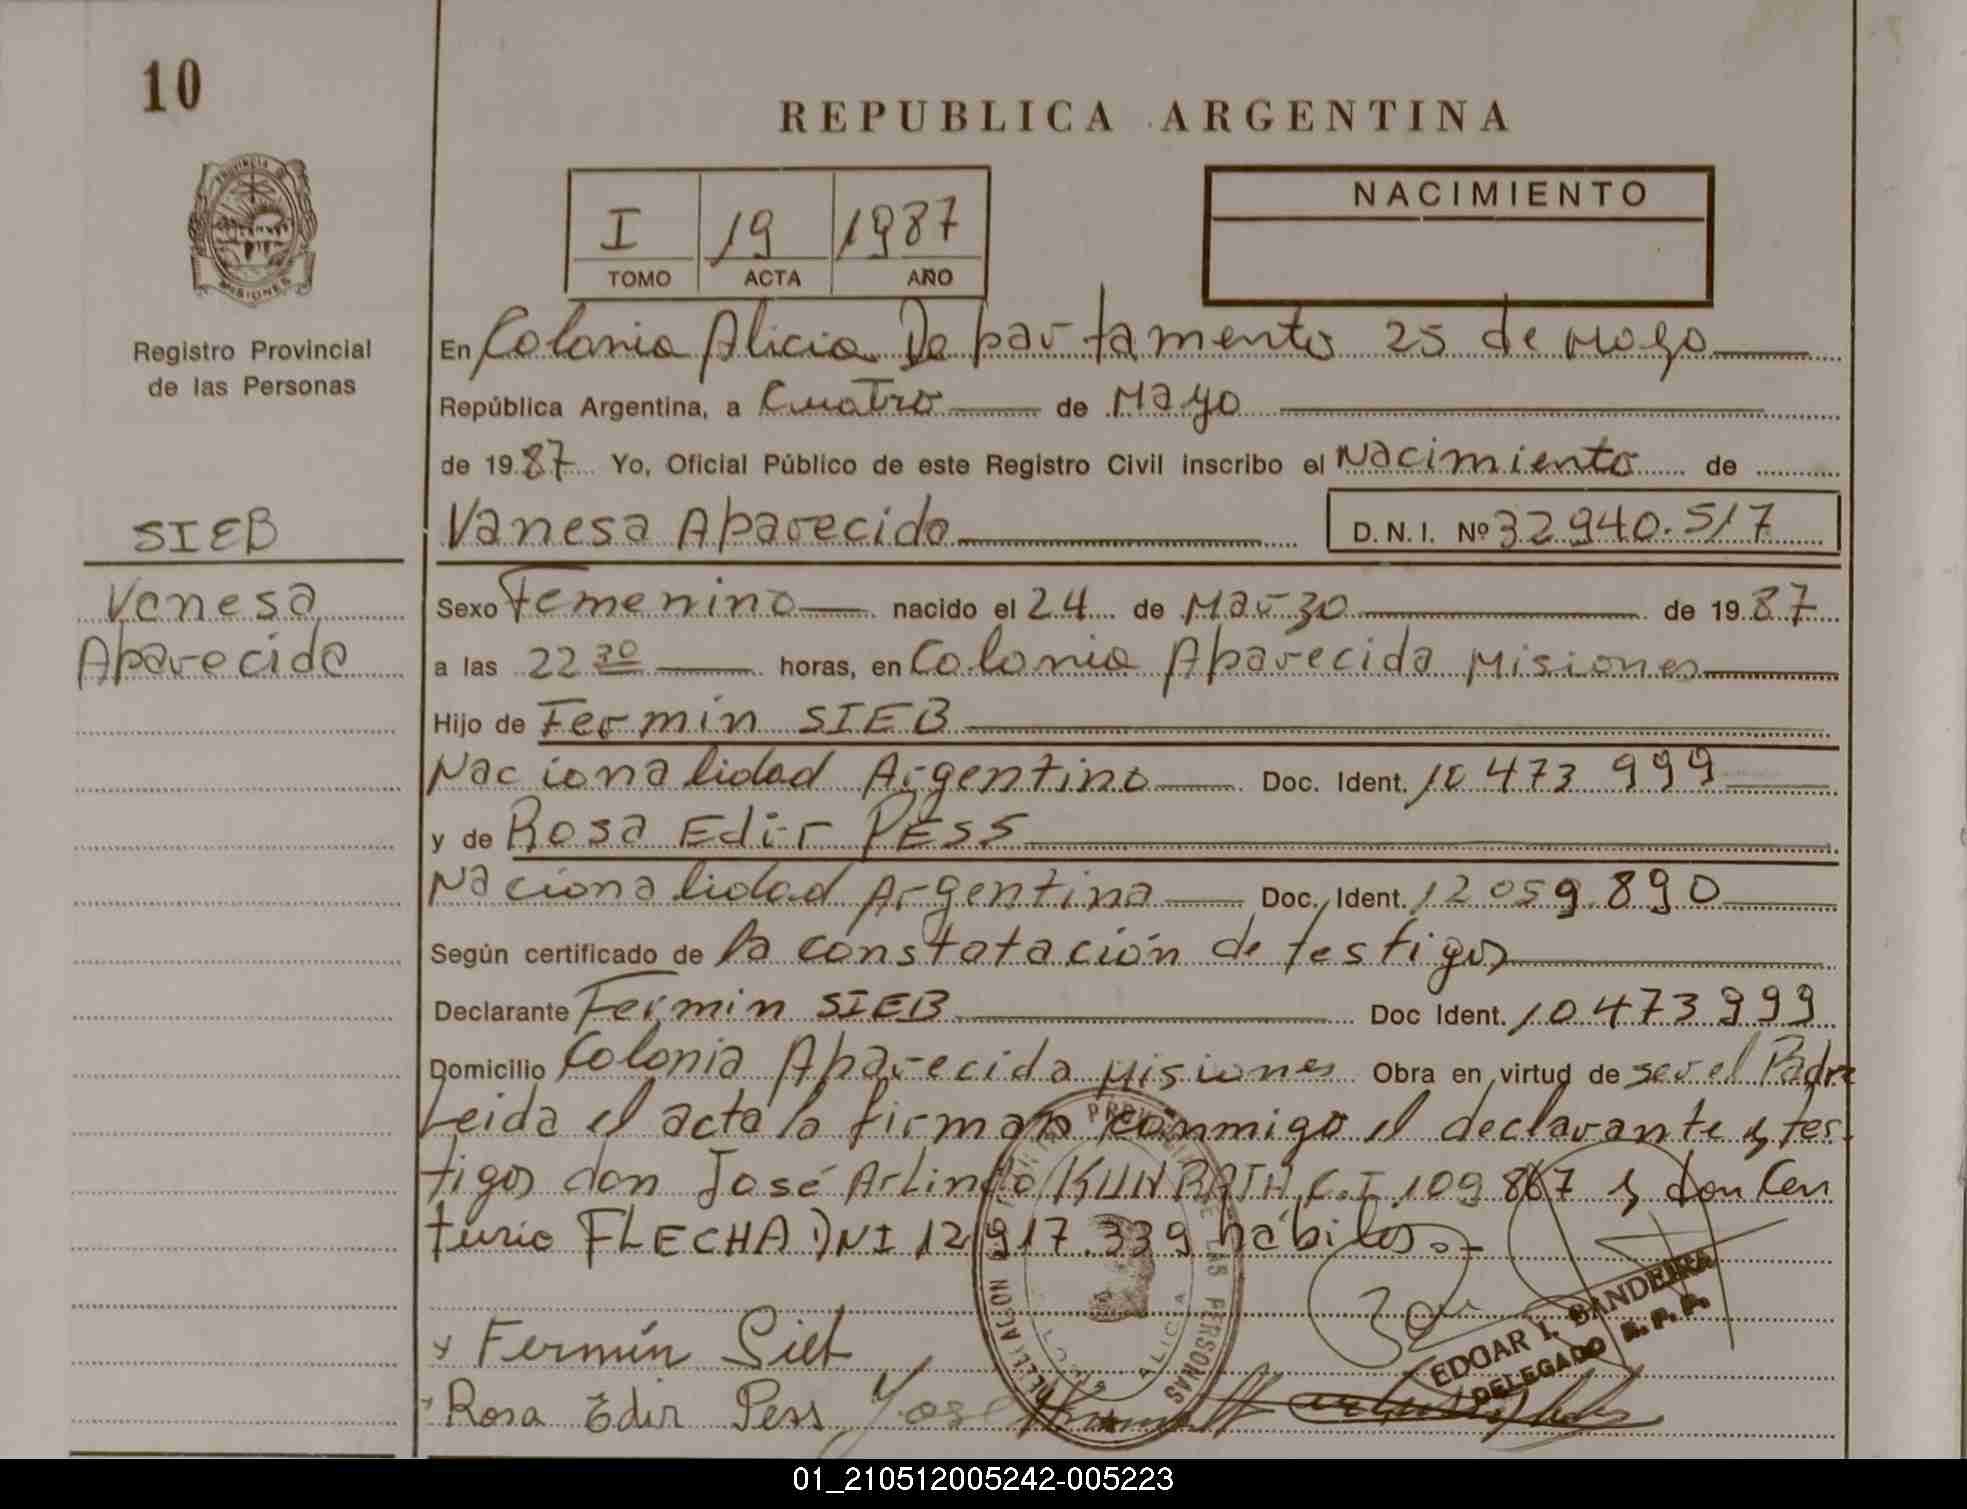 10
REPUBLICA ARGENTINA
PROVINCIA
MISIONES
NACIMIENTO
I 19 1987
TOMO ACTA AÑO
Registro Provincial
de las Personas
En Colonia Alicia Departamento 25 de Mayo
República Argentina, a Cuatro de Mayo
de 1987 Yo, Oficial Público de este Registro Civil inscribo el Nacimiento de
SIEB
Vanesa Aparecida D.N.I. Nº 32940.517
Vanesa
Aparecida
Sexo Femenino nacido el 24 de Marzo de 1987
a las 22 30 horas, en Colonia Aparecida Misiones
Hijo de Fermin SIEB
Nacionalidad Argentino Doc. Ident. 10 473 999
y de Rosa Edir PESS
Nacionalidad Argentina Doc. Ident. 12 059.890
Según certificado de la constatación de testigos
Declarante Fermin SIEB Doc Ident. 10 473 999
Domicilio Colonia Aparecida Misiones Obra en virtud de ser el Padre
Leida el acta la firman conmigo el declarante y tes-
tigos don José Arlindo KUNRATH C.I 109 867 y don Cen
turio FLECHA DNI 12 917.339 hábiles.-
Fermín Sieb
Rosa Edir Pess José
EDGAR I. BANDEIRA
DELEGADO R. P. P.
DE LAS PERSONAS
ALICIA
01_210512005242-005223